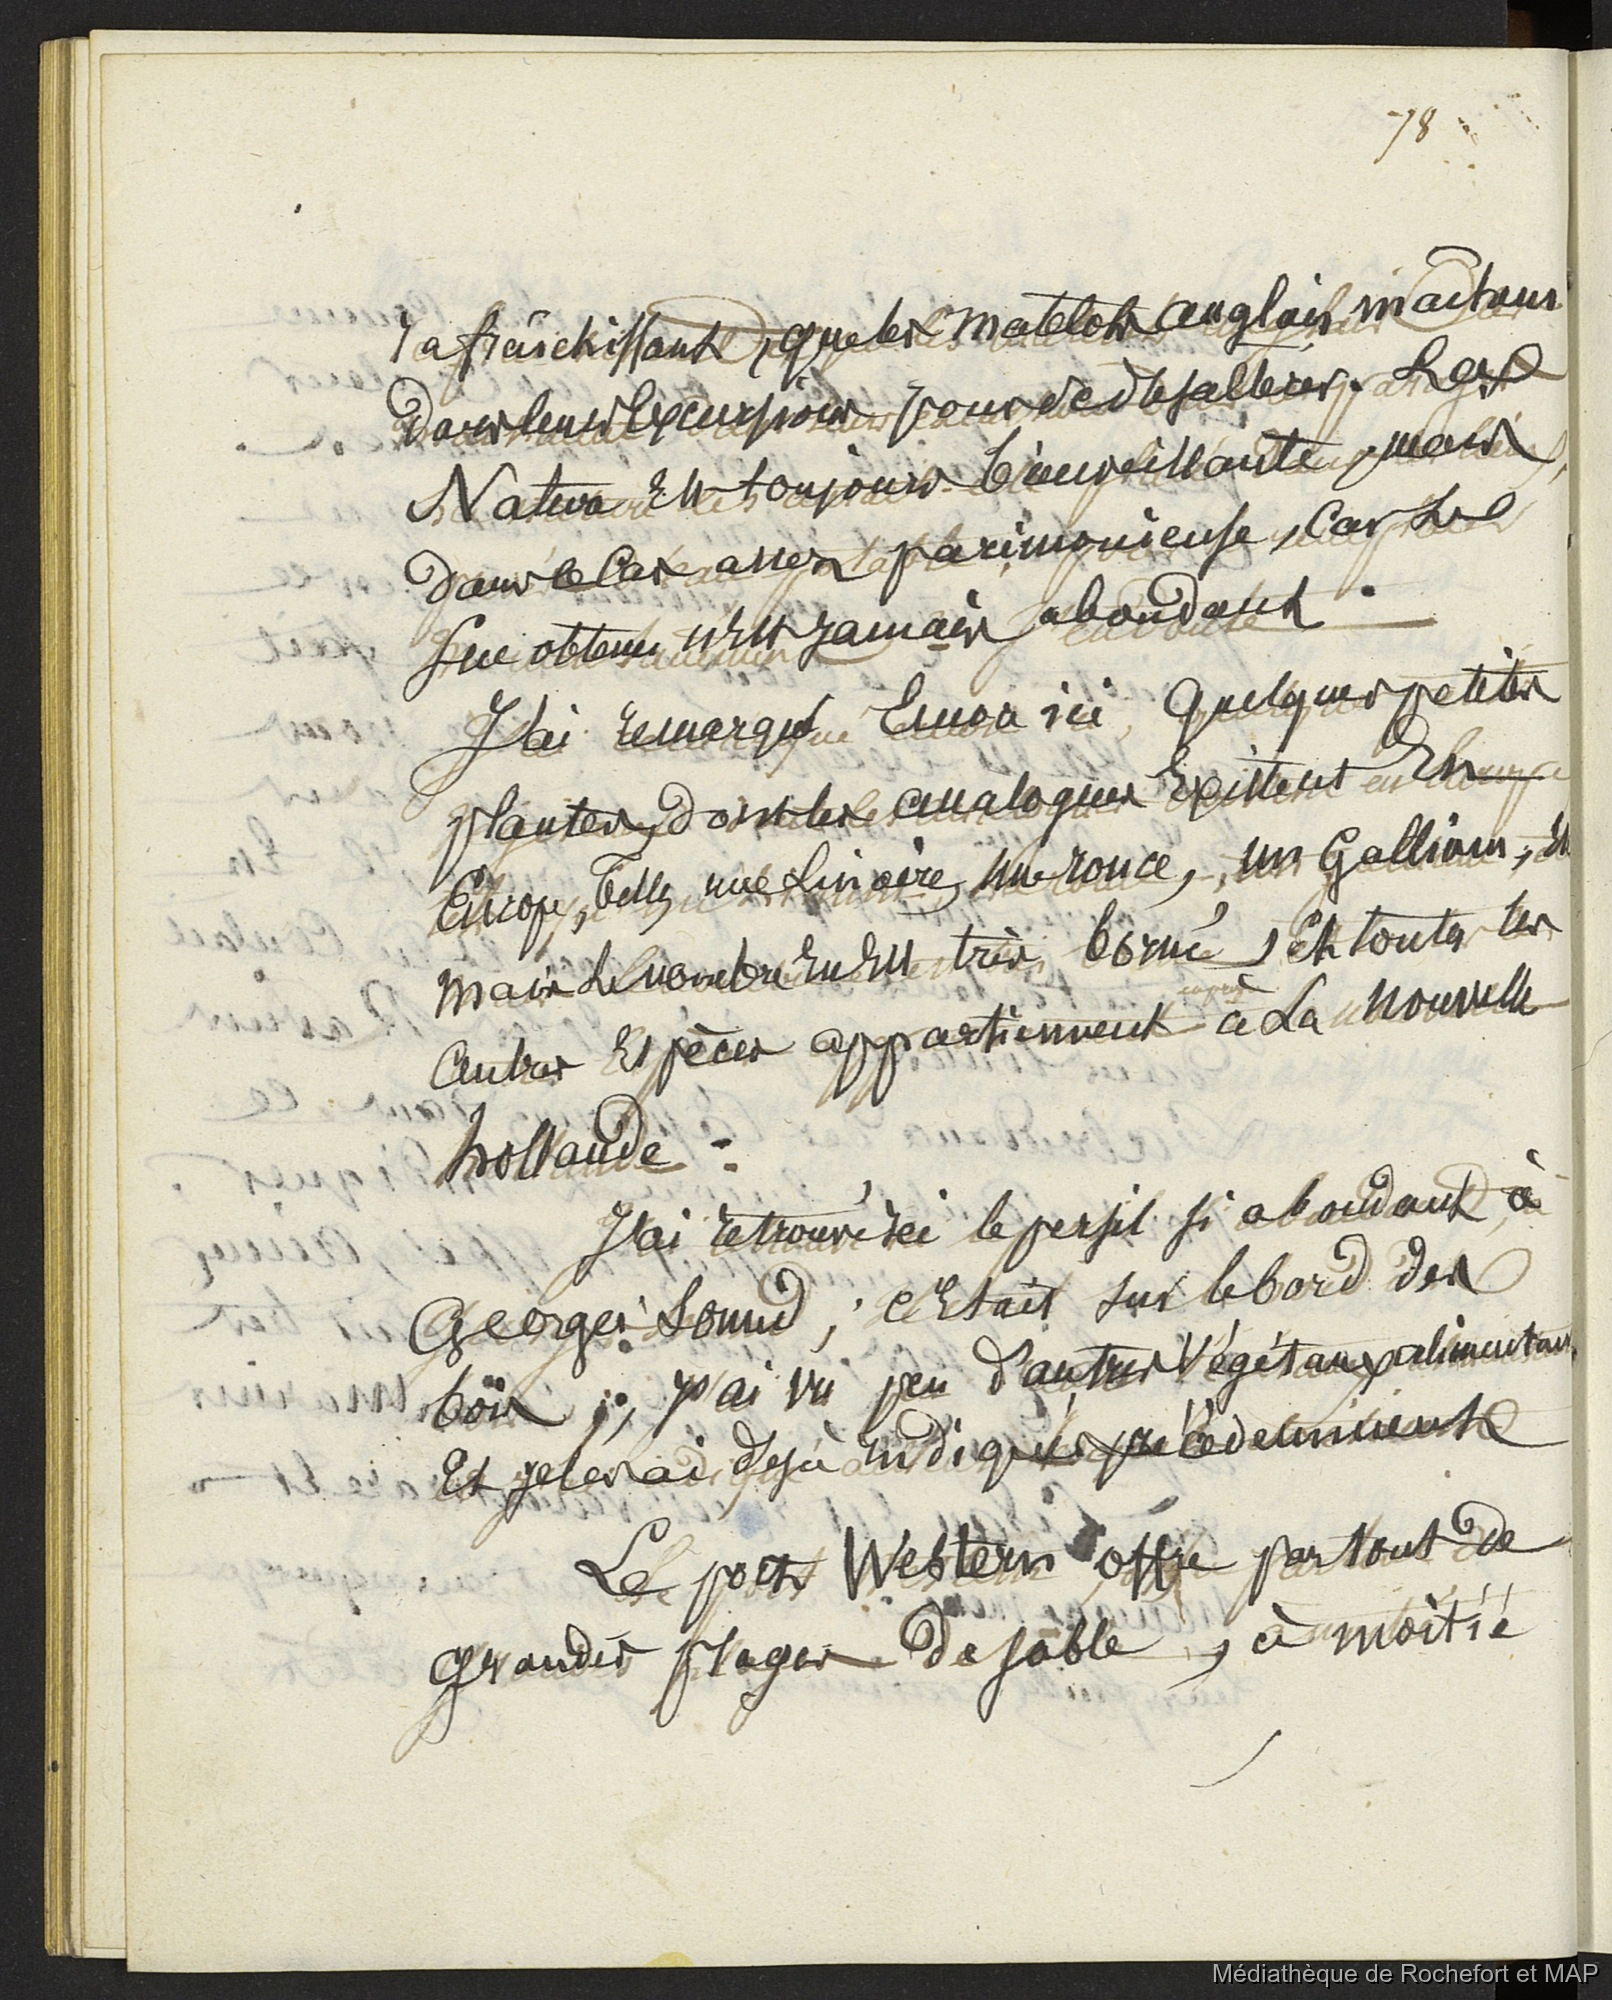 78
rafraichissant, que les matelots anglais machent
dans leurs Excursions pour se désaltérer. La
Nature Est toujours bienveillante, mais
dans ce Cas assez parcimonieuse, Car Le
suc obtenu n'est jamais abondant.
J'ai remarqué Encor ici quelques petites
plantes, dont les analogues Existent En
Europe, telle une Linaire, une ronce, un Gallium, Et
mais Le nombre En Est très borné, Et toutes les
autres Espèces appartiennent à La nouvelle
hollande.
J'ai retrouvé ici le persil si abondant à
Georges Sound ; c'Etait sur le bord des
bois ; j'ai vu peu d'autres végétaux alimentaires
Et je les ai déjà indiqués précédemment
Le port Western offre partout de
grandes plages de sable, à moitié
Médiathèque de Rochefort et MAP